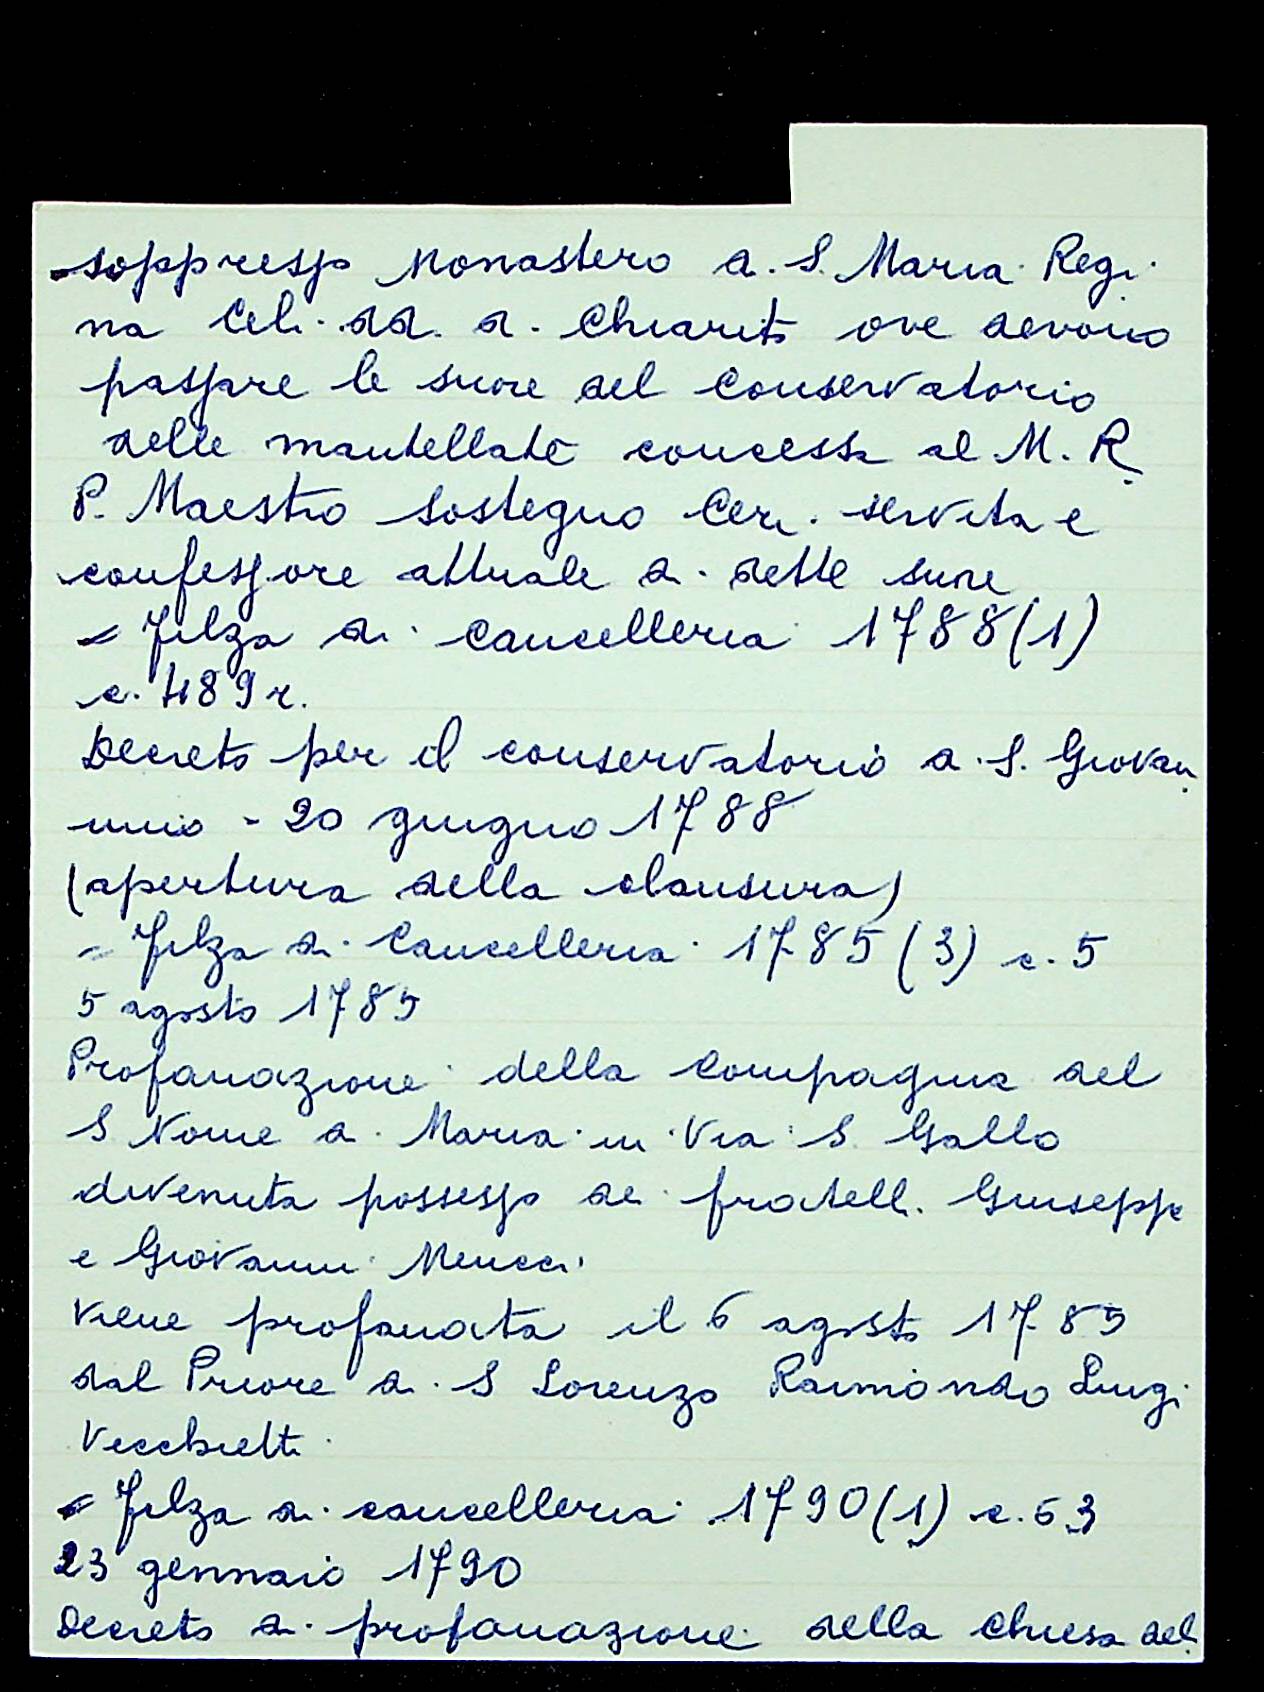 soppresso Monastero di S. Maria Regi
na Celi dd. di Chiarito ove devono
passare le suore del Conservatorio
delle mantellate concessa al M. R.
P. Maestro Sostegno Ceri servita e
confessore attuale di dette suore
= Filza di Cancelleria 1788 (1)
c. 489 r.
Decreto per il conservatorio di S. Giovan
nino - 20 giugno 1788
(apertura della clausura)
= Filza di Cancelleria 1785 (3) c. 5
5 agosto 1785
Profanazione della Compagnia del
S Nome di Maria in Via S. Gallo
divenuta possesso dei fratelli Giuseppe
e Giovanni Meucci
viene profanata il 6 agosto 1785
dal Priore di S Lorenzo Raimondo Luigi
Vecchietti
= Filza di cancelleria 1790 (1) c. 63
23 gennaio 1790
Decreto di profanazione della Chiesa del